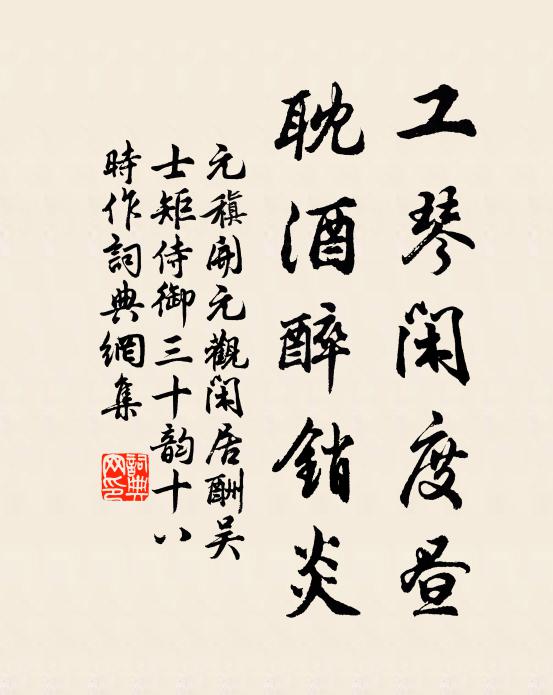 工琴閑度昼
耽酒醉銷炎
元稹開元觀閑居酬吴
士矩侍御三十韵十八
時作詞典網集
詞典网印